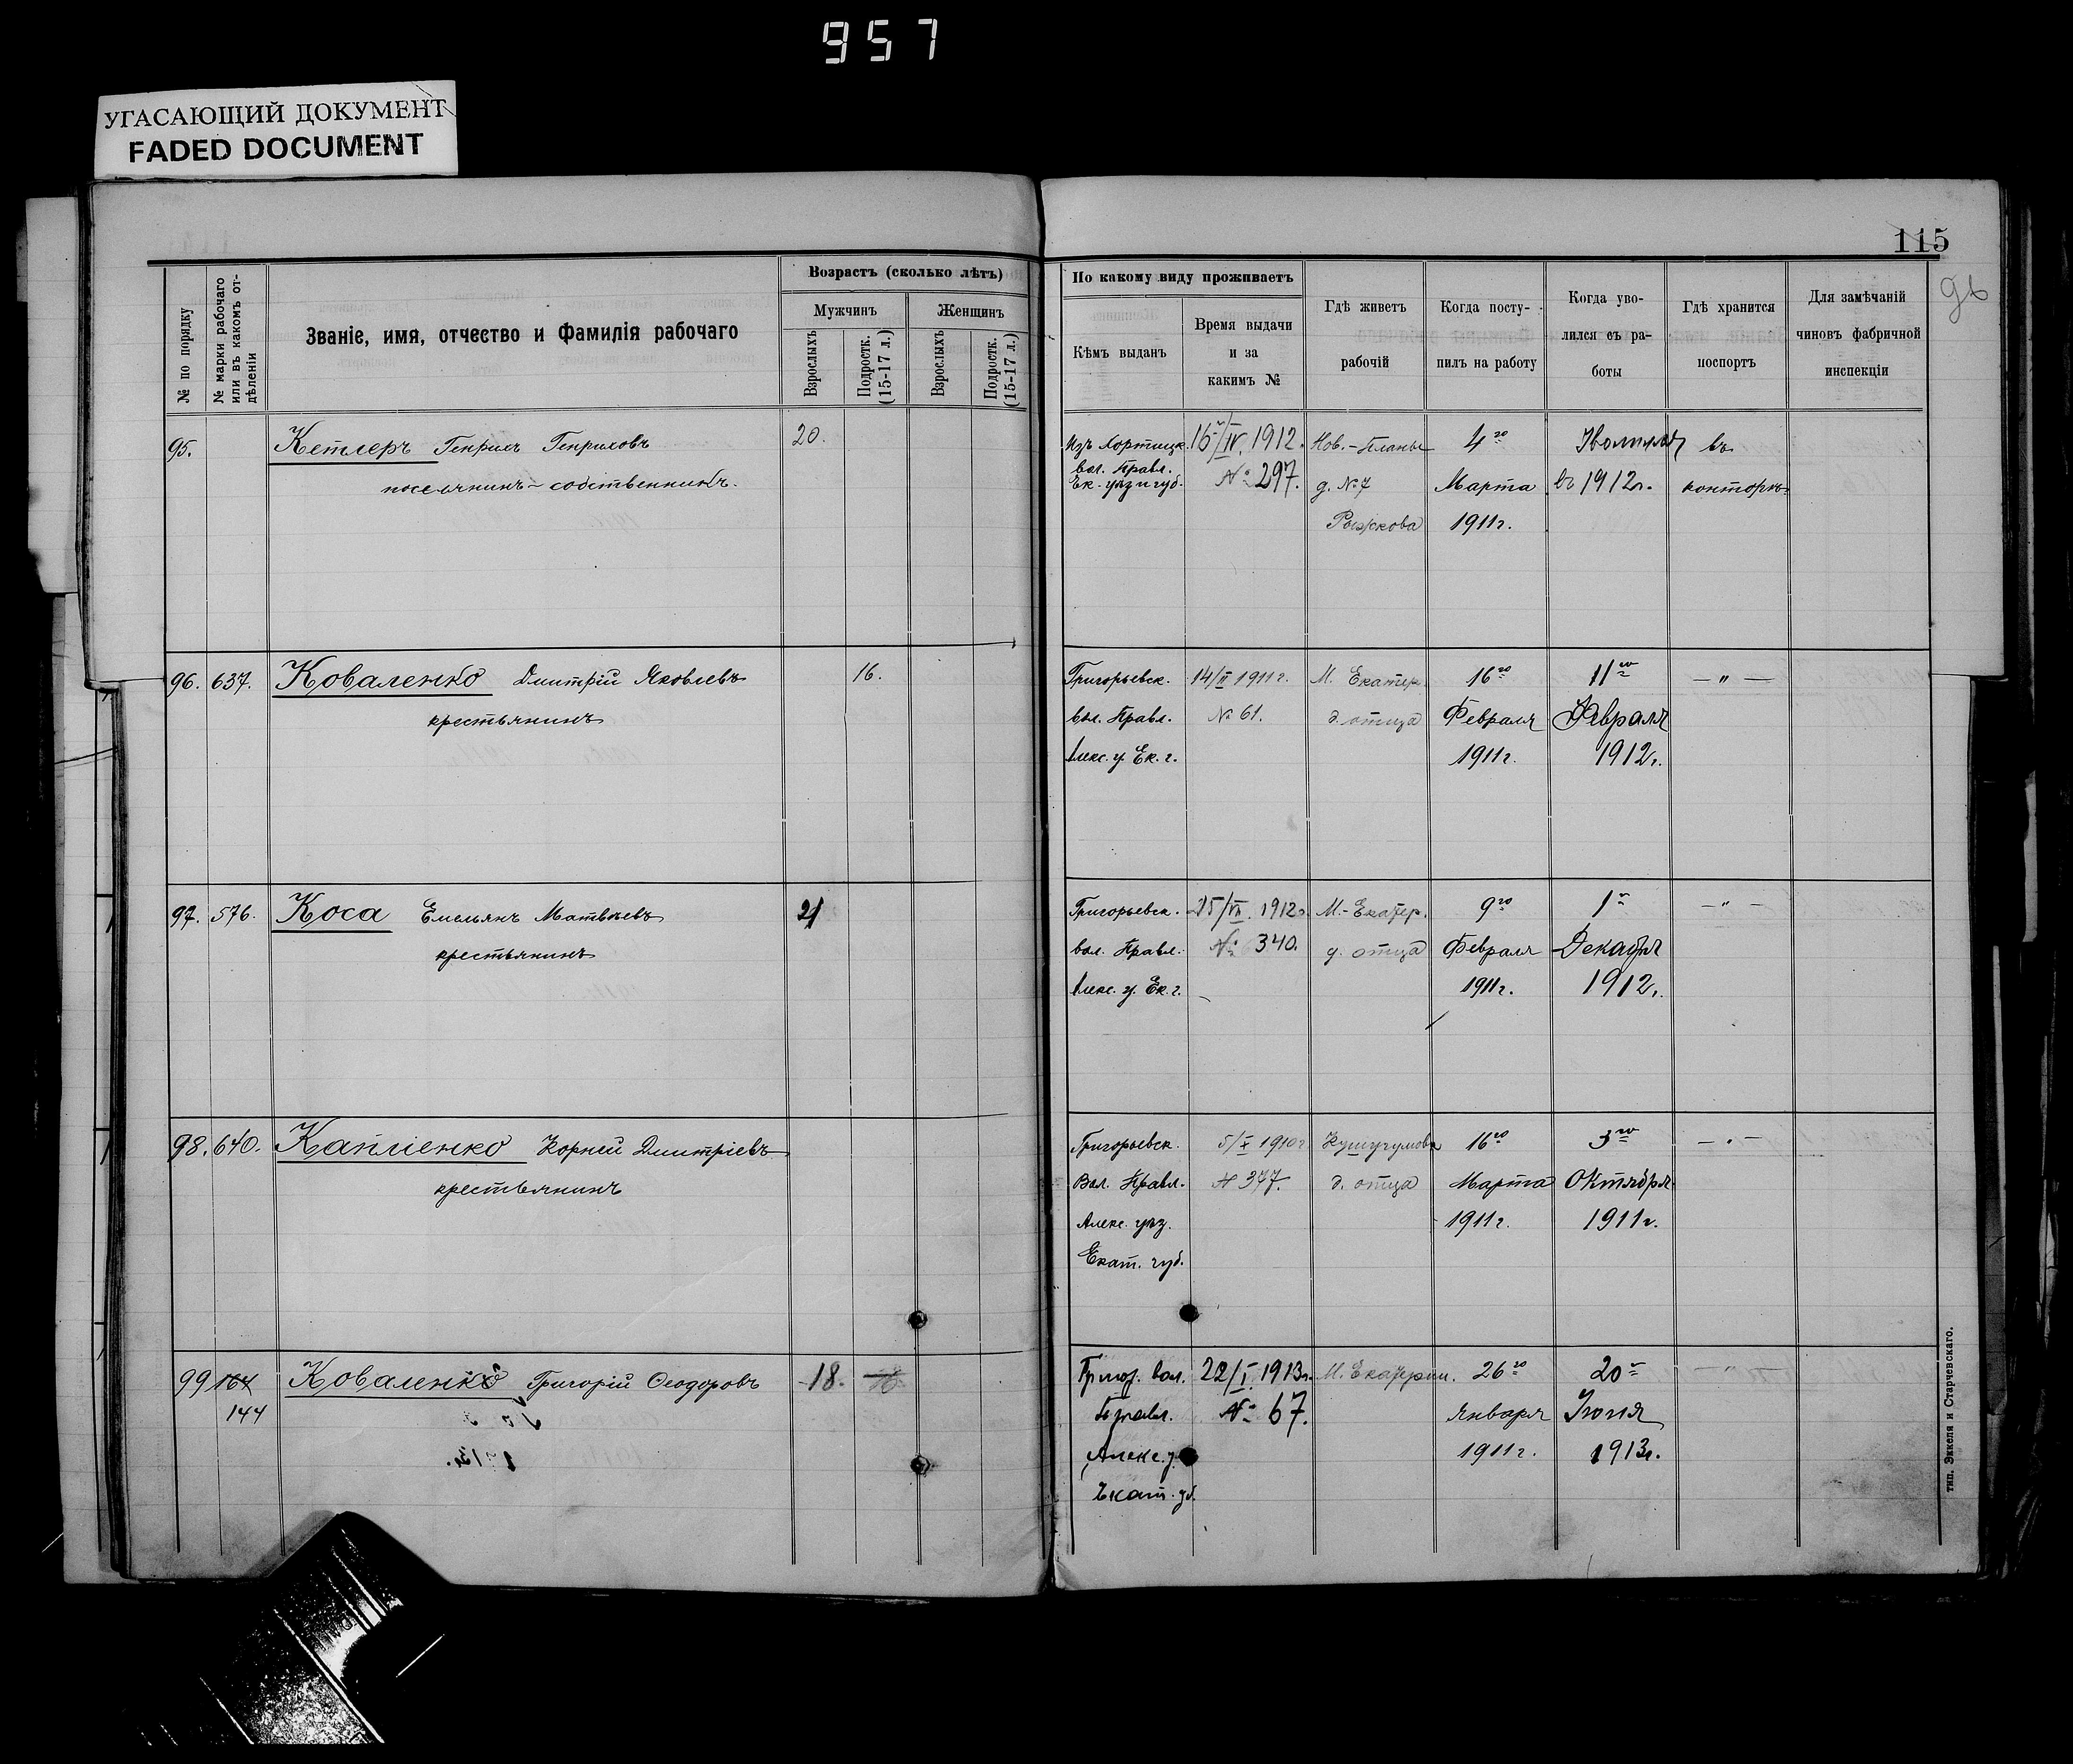 957
УГАСАЮЩИЙ ДОКУМЕНТ
FADED DOCUMENT
115
96
№ по порядку
№ марки рабочаго или въ какомъ отдѣленіи
Званіе, имя, отчество и фамилія рабочаго
Возрастъ (сколько лѣтъ)
Мужчинъ
Женщинъ
Взрослыхъ
Подростк. (15-17 л.)
Взрослыхъ
Подростк. (15-17 л.)
По какому виду проживаетъ
Кѣмъ выданъ
Время выдачи и за какимъ №
Гдѣ живетъ рабочій
Когда поступилъ на работу
Когда уволился съ работы
Гдѣ хранится поспортъ
Для замѣчаній чиновъ фабричной инспекціи
95. Кетлеръ Генрихъ Генриховъ 20.
поселянинъ-собственникъ.
Изъ Хортицк. 16/IV. 1912. Нов.-Планы 4го въ
вол. Правл. № 297. д. №7 Марта въ 1912г. конторѣ
Ек. уѣз и губ. Рыжкова 1911г.
96. 637. Коваленко Дмитрій Яковлевъ 16.
крестьянинъ
Григорьевск. 14/II 1911г. М. Екатер. 16го 11го — " —
вол. Правл. № 61. д. отца Февраля Февраля
Алекс. у. Ек. г. 1911г. 1912г.
97. 576. Коса Емельянъ Матвѣевъ 21
крестьянинъ
Григорьевск. 1912г. М.-Екатер. 9го 1го — " —
вол. Правл. № 340. д. отца Февраля Декабря
Алекс. у. Ек. г. 1911г. 1912г.
98. 640. Капліенко Корней Дмитріевъ
крестьянинъ
Григорьевск. 5/X 1910г. Кушугумовк 16го 3го — " —
Вол. Правл. № 377. д. отца Марта Октября
Алекс. уѣз. 1911г. 1911г.
Екат. губ.
99 164 Коваленко Григорій Ѳеодоровъ 18. 16.
144
Григ. вол. 22/I 1913г. М. Екатерин. 26го 20го — " —
Правл. № 67. Января Іюня
Алекс. у. 1911г. 1913г.
Екат. гб.
тип. Эккеля и Старчевскаго.